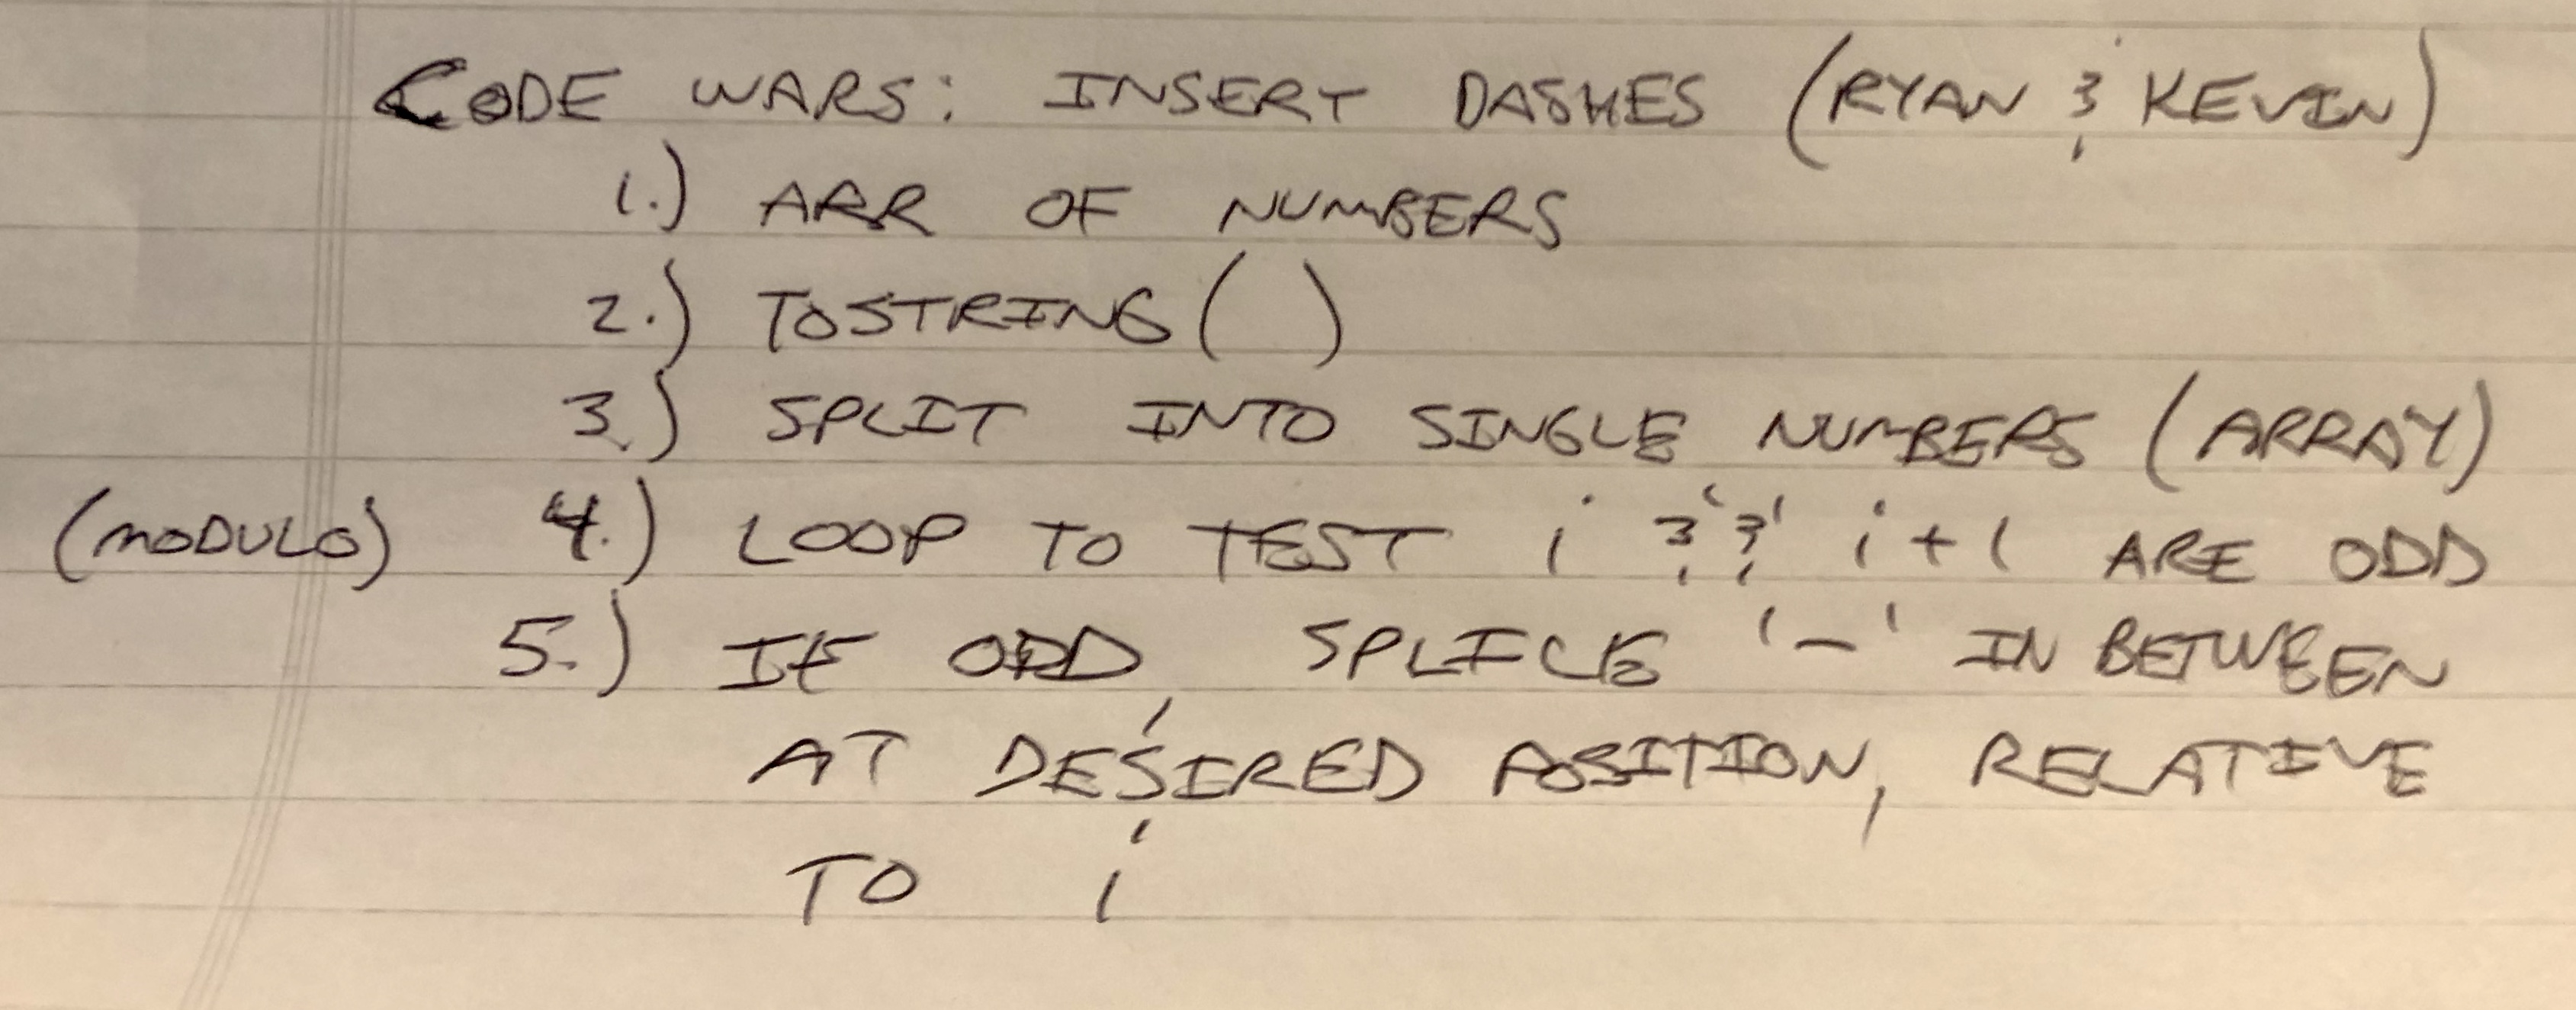 CODE WARS: INSERT DASHES (RYAN & KEVIN)
1.) ARR OF NUMBERS
2.) TOSTRING( )
3.) SPLIT INTO SINGLE NUMBERS (ARRAY)
(MODULO) 4.) LOOP TO TEST i '&&' i+1 ARE ODD
5.) IF ODD, SPLICE '-' IN BETWEEN
AT DESIRED POSITION, RELATIVE
TO i